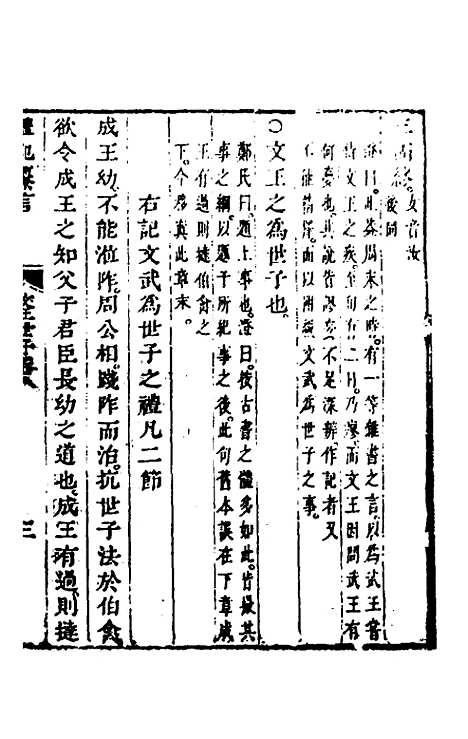 三而終。女音汝後同
澄曰。此蓋周末之時。有一等雜書之言。以爲武王嘗
侍文王之疾。至旬有二日。乃瘳。而文王因問武王有
何夢也。其説皆謬妄。不足深辨。作記者又
文武爲世子之事。
○文王之爲世子也。
鄭氏曰。題上事也。澄曰。按古書之體多如此。皆撮其
事之綱。以題于所紀事之後。此句舊本誤在下章成
王有過則撻伯禽之
下。今移寘此章末。
右記文武爲世子之禮凡二節
成王幼。不能涖阼。周公相。踐阼而治。抗世子法於伯禽
欲令成王之知父子君臣長幼之道也。成王有過則撻
禮記纂言
文王世子
三